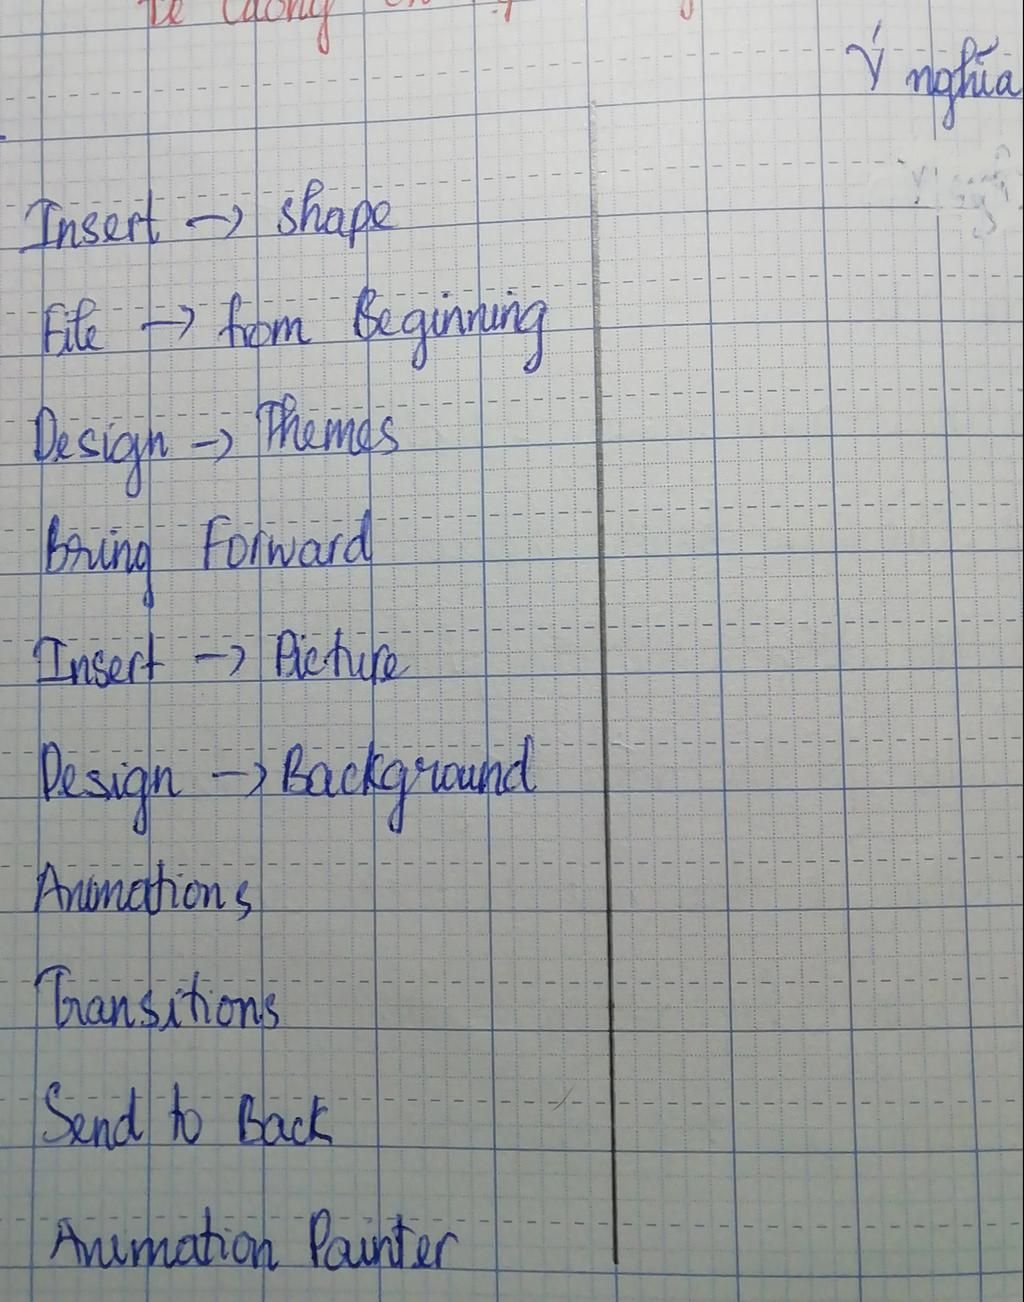 Ý nghĩa
Insert → shape
File → from Beginning
Design → Themes
Bring Forward
Insert → Picture
Design → Background
Animations
Transitions
Send to Back
Animation Painter